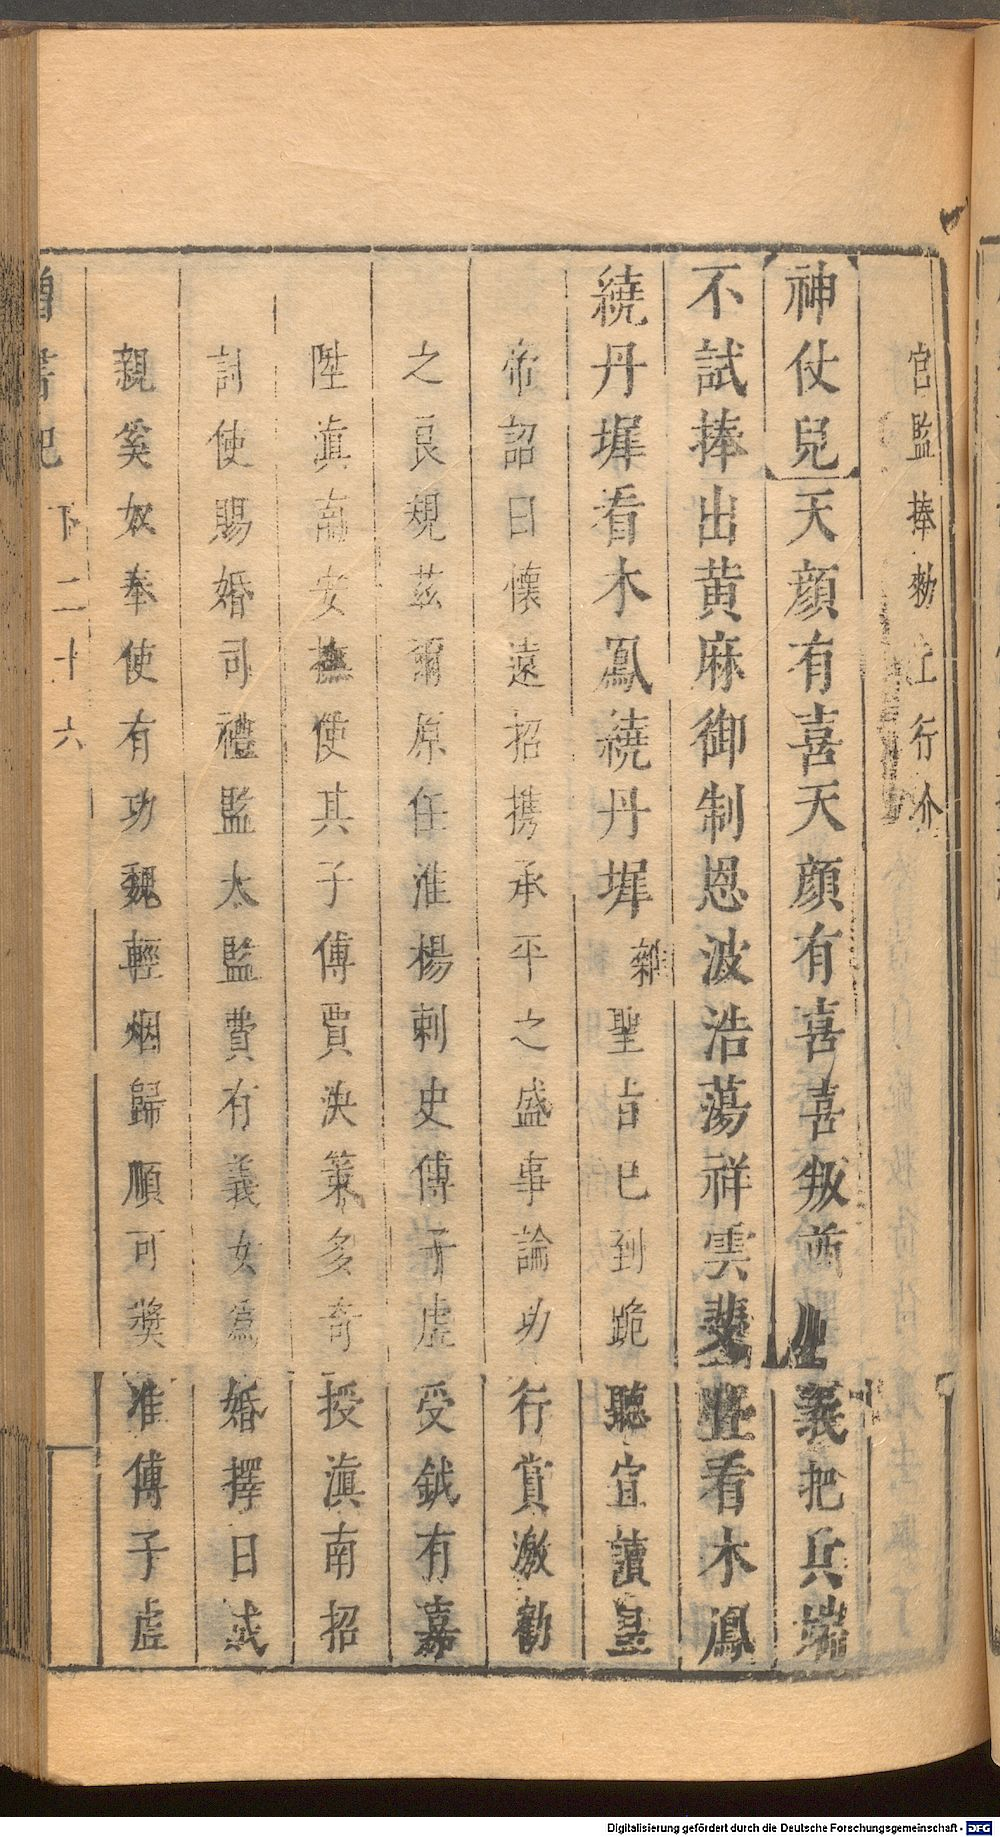 官監捧勅上行介
神仗兒天顔有喜天顔有喜喜叛酋義把兵端
不試捧出黄麻御制恩波浩蕩祥雲斐亹看木鳳
繞丹墀看木鳳繞丹墀 雜聖旨已到跪聽宣讀皇
帝詔曰懷遠招携承平之盛事論功行賞激勸
之良規茲爾原任淮楊剌史傅子虛受鉞有嘉
陞滇南安撫使其子傅賈決策多奇授滇南招
討使賜婚司禮監太監費有義女爲婚擇日成
親奚奴奉使有功魏輕烟歸順可奬准傅子虛
下二十六
Digitalisierung gefördert durch die Deutsche Forschungsgemeinschaft - DFG